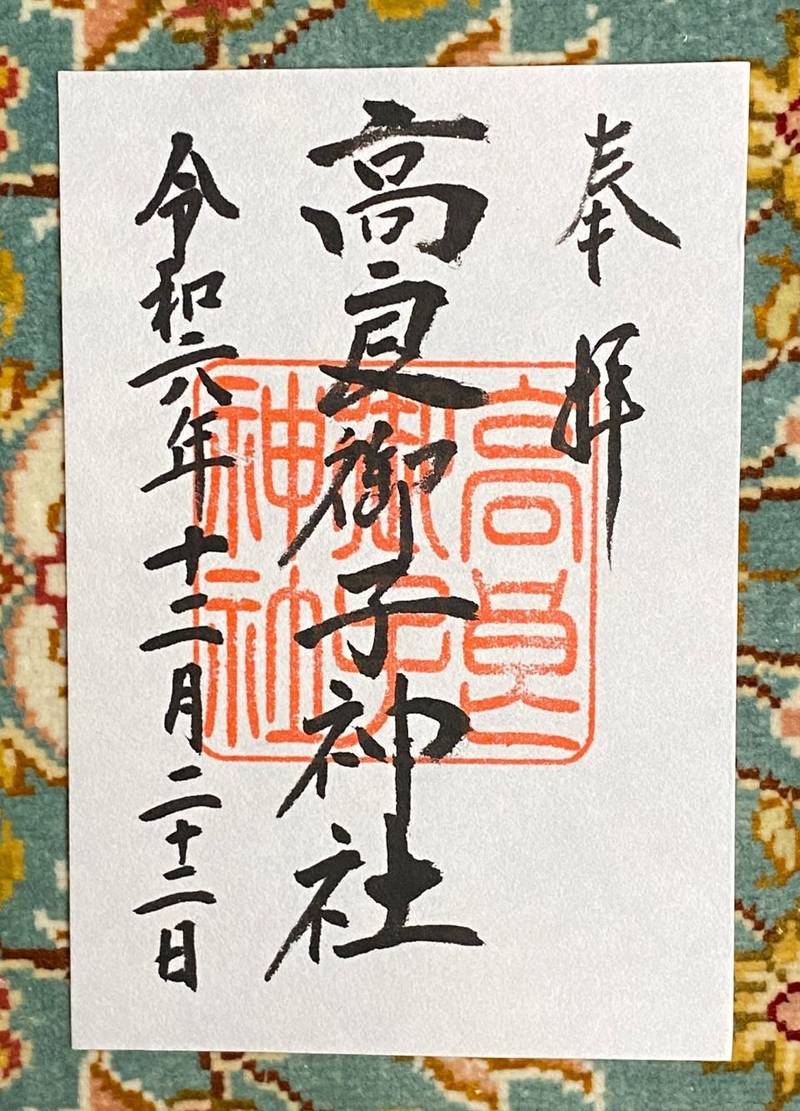 奉拝
高良御子神社
令和六年十二月二十二日
高良
御子
神社